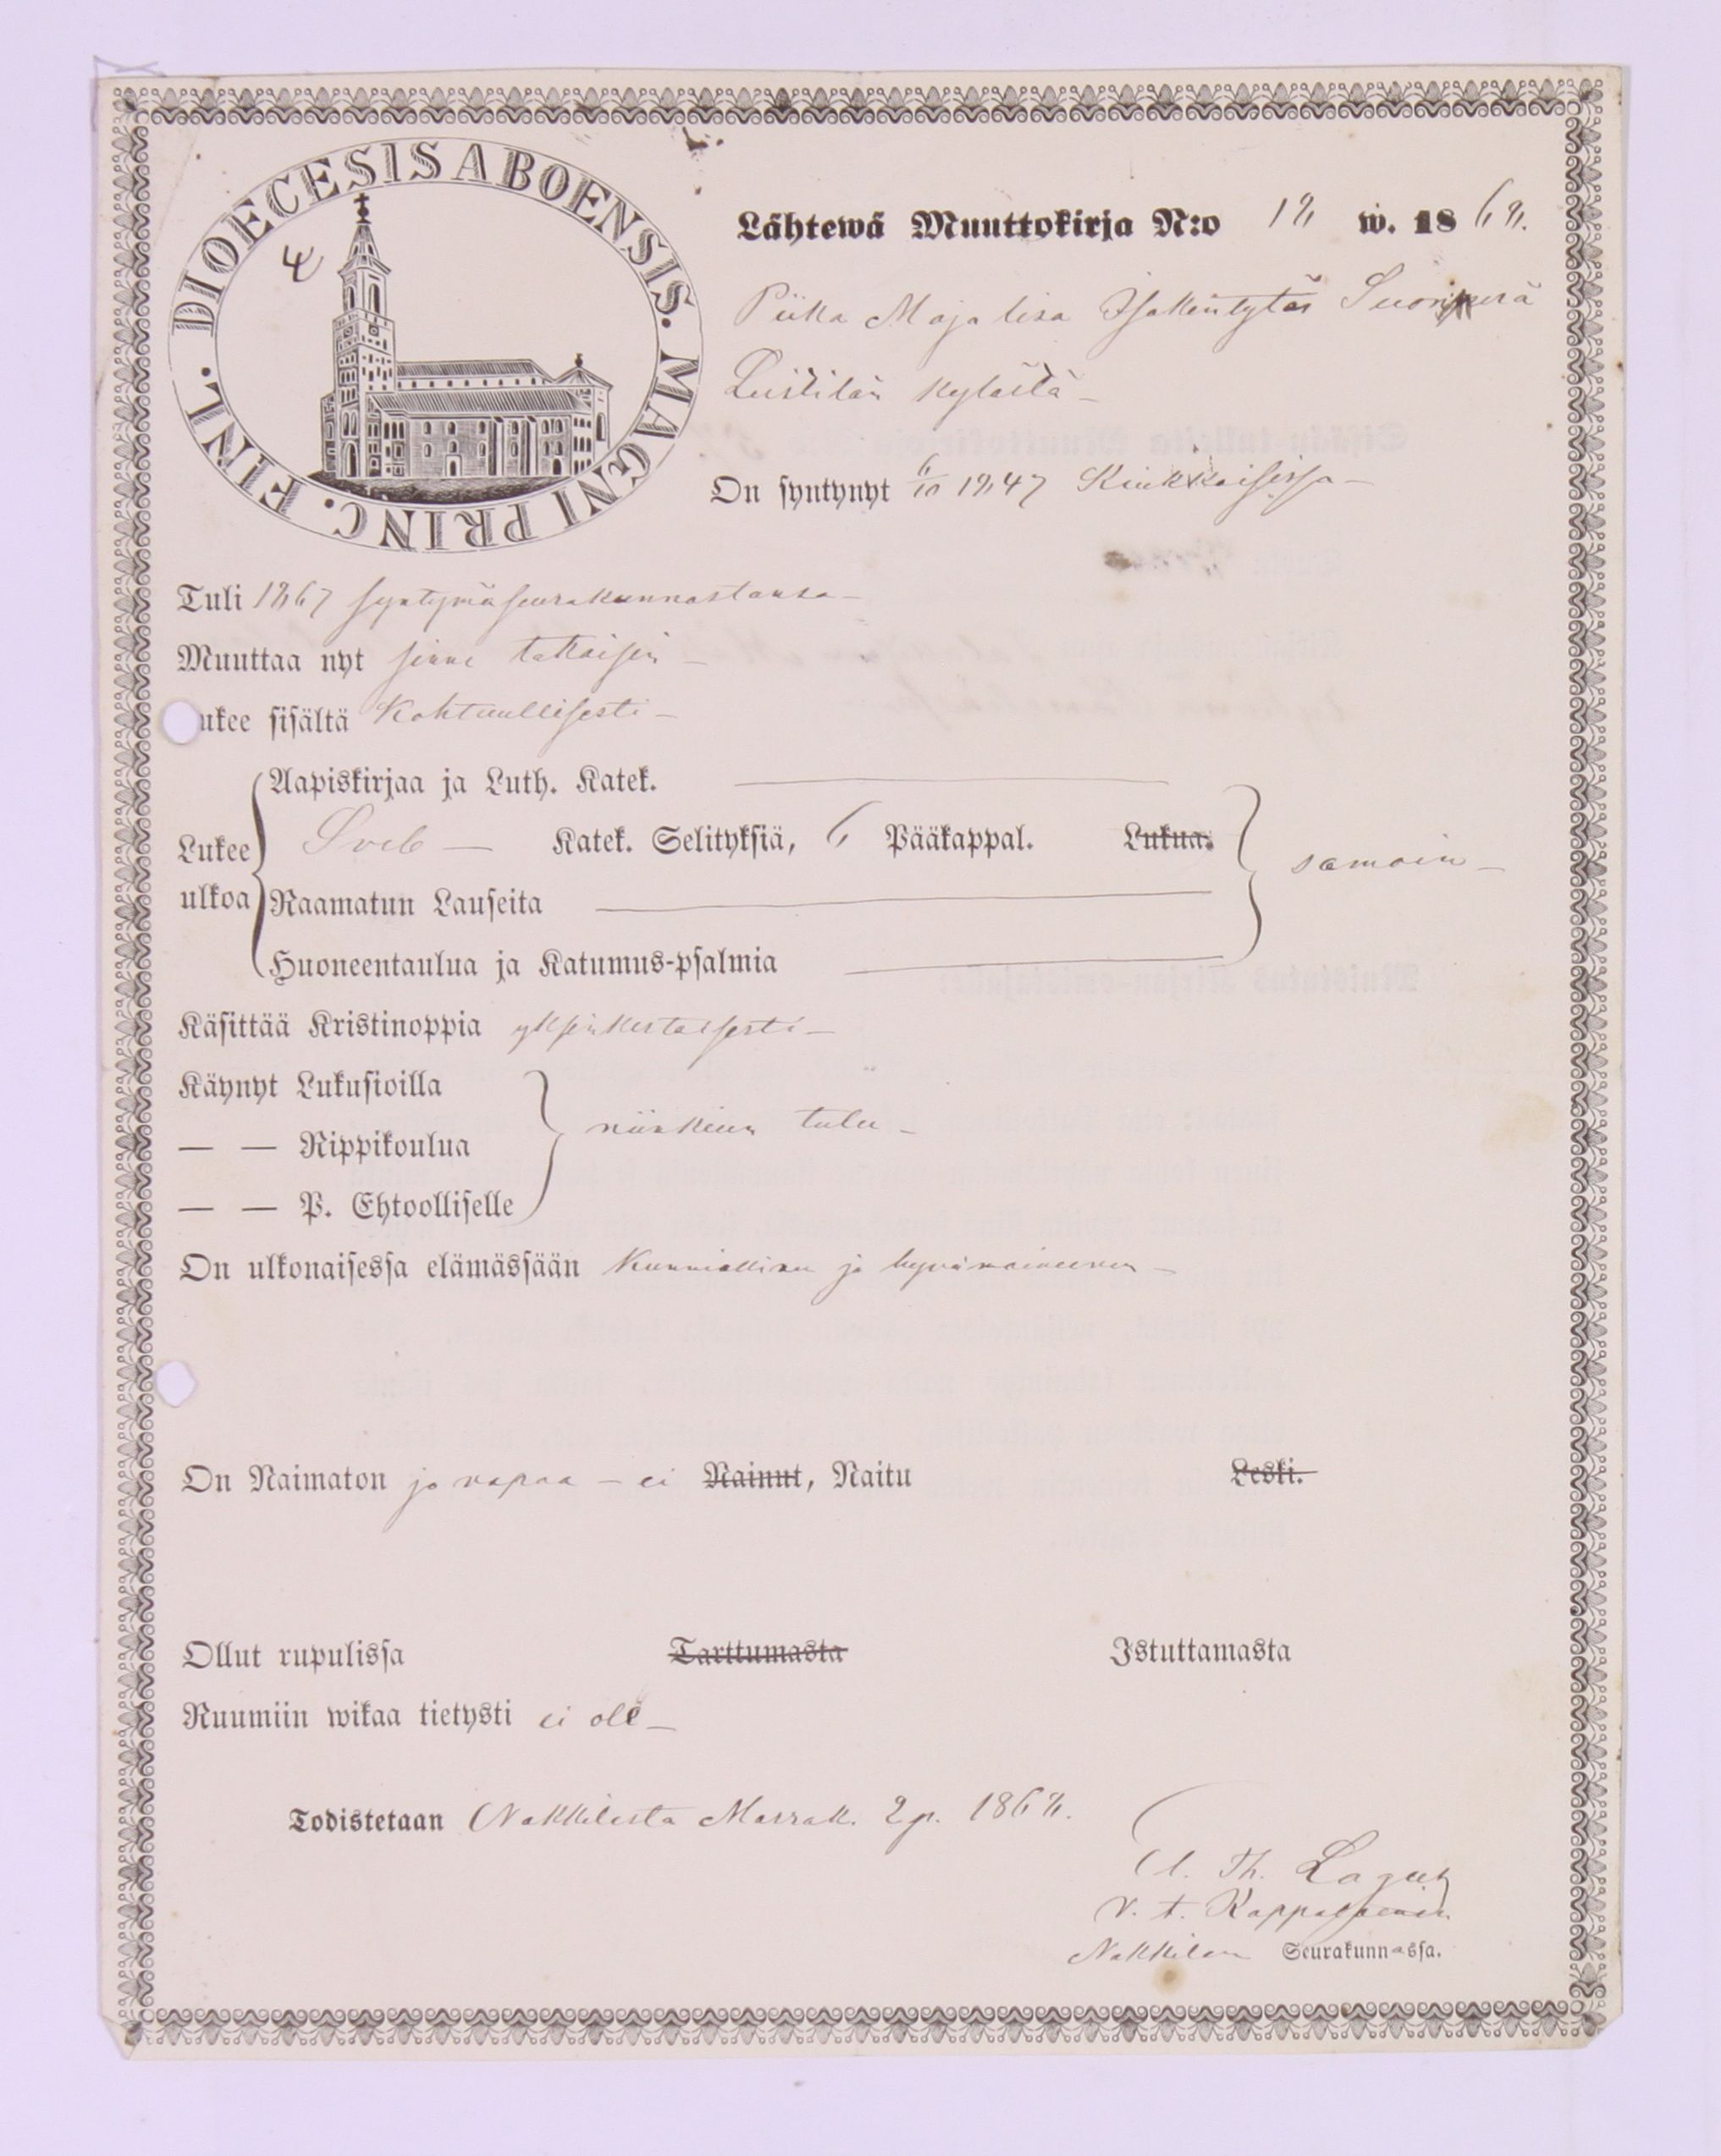 DIOECESIS ABOENSIS. MAGNI PRINC. FINL.
4
Lähtewä Muuttokirja N:o 18 w. 1868.
Piika Maja Lisa Isakintytär Suorsperä
Leistilän kylästä –
On syntynyt 6/10 1847 Kiukkaisissa –
Tuli 1867 syntymäseurakunnastansa –
Muuttaa nyt sinne takaisin –
ukee sisältä Kohtuullisesti –
Aapiskirjaa ja Luth. Katek.
Lukee ulkoa Sveb – Katek. Selityksiä, 6 Pääkappal. Lukua. samoin –
Raamatun Lauseita
Huoneentaulua ja Katumus-psalmia
Käsittää Kristinoppia yksinkertaisesti –
Käynyt Lukusioilla
— — Rippikoulua niinkuin tulee –
— — P. Ehtoolliselle
On ulkonaisessa elämässään kunniallinen ja hyvämaineinen –
On Naimaton ja vapaa – ei Nainut, Naitu Leski.
Ollut rupulissa Tarttumasta Istuttamasta
Ruumiin wikaa tietysti ei ole –
Todistetaan Nakkilasta Marrask. 2 p. 1868.
Th. Lagus
v. t. Kappalainen
Nakkilan Seurakunnassa.